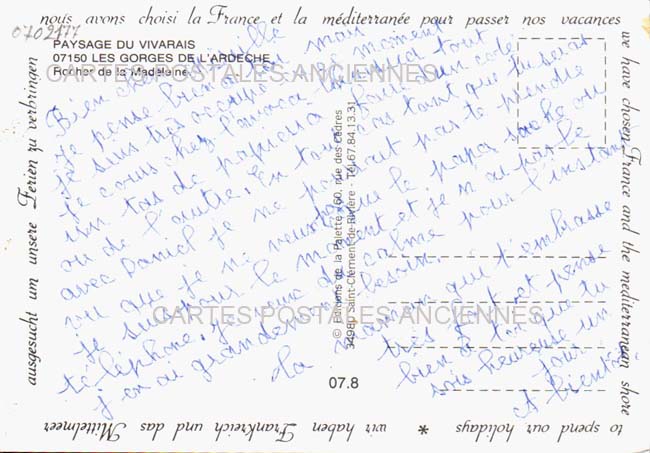 nous avons choisi la France et la méditerranée pour passer nos vacances
07021177
PAYSAGE DU VIVARAIS
07150 LES GORGES DE L'ARDECHE
Rocher de la Madeleine
CARTES POSTALES ANCIENNES
Bien
je pense bien mon
je suis très moment
je cours chez tout
un tas de papiers à
ou de l'autre. En tout cas tant que je serai
avec Daniel je ne pourrai pas te prendre
vu que je ne veux que le papa sache où
je suis pour le moment et je n'ai pas le
téléphone, j'ai du calme pour l'instant
j'en ai grandement besoin.
la maman que t'embrasse
très fort et pense
bien à toi que tu
sois heureuse un
jour
et bientôt
© Editions de la Palette - 60, rue des Cèdres
34980 Saint-Clément-de-Rivière - Tél. 67.84.13.31
CARTES POSTALES ANCIENNES
07.8
we have chosen France and the mediterranean shore
to spend our holidays * wir haben Frankreich und das Mittelmeer
ausgesucht um unsere Ferien zu verbringen